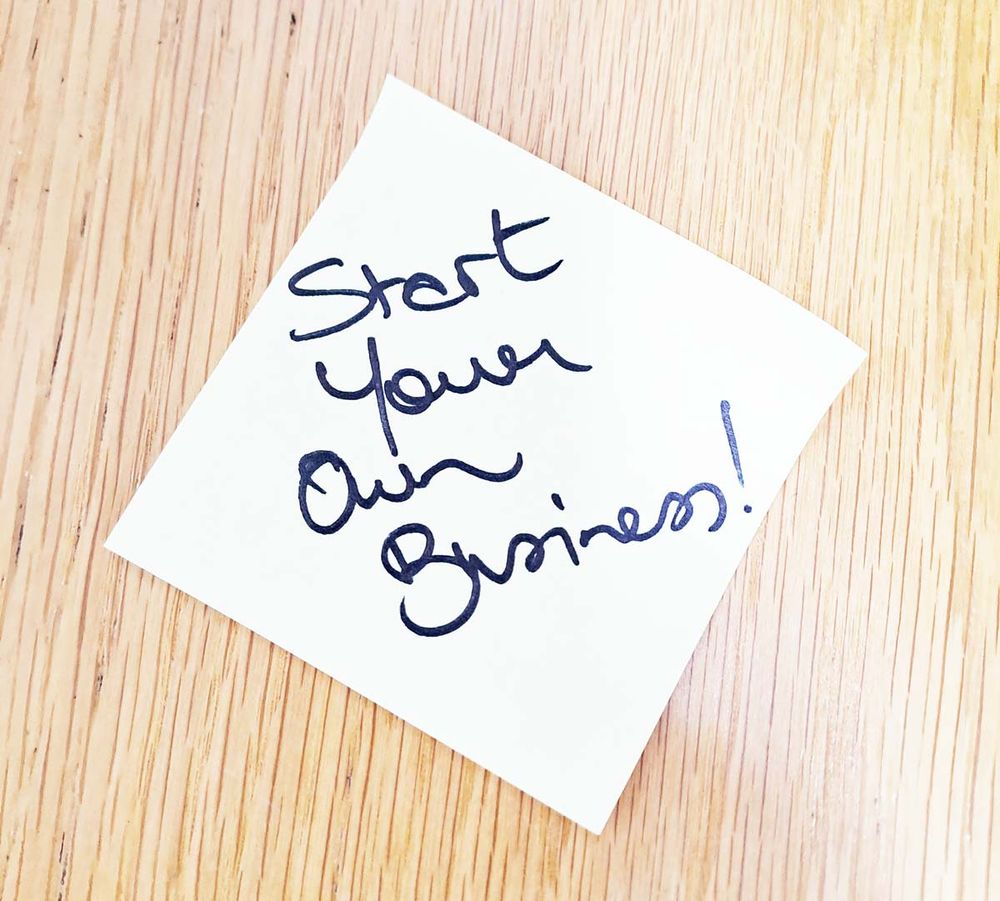 Start
Your
Own
Business!